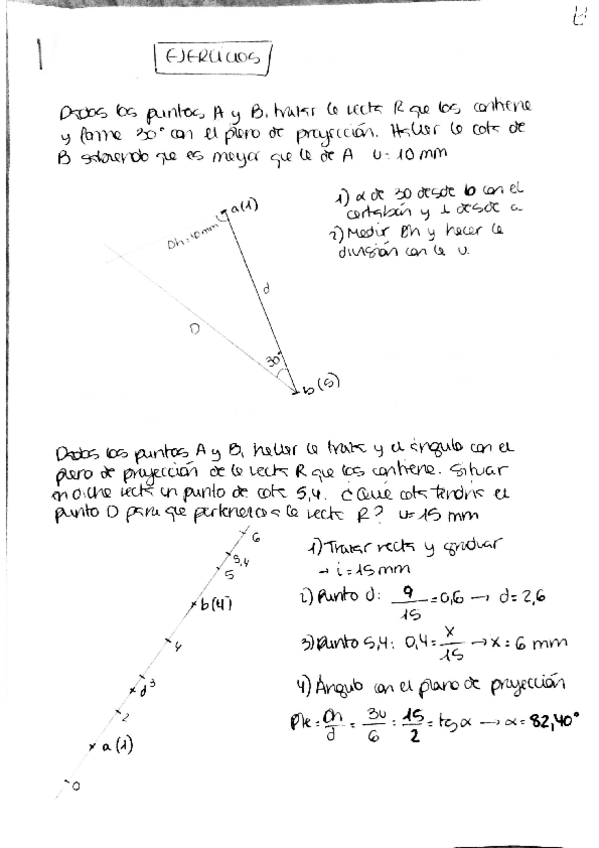 1
EJERCICIOS
Dados los puntos A y B, trazar la recta R que los contiene
y forme 30° con el plano de proyección. Hallar la cota de
B sabiendo que es mayor que la de A u=10 mm
a(1)
Dh=10mm
d
D
30°
b(5)
1) α de 30 desde b con el
cartabón y ⊥ desde a
2) Medir Dh y hacer la
división con la u.
Dados los puntos A y B, hallar la traza y el ángulo con el
plano de proyección de la recta R que los contiene. Situar
en dicha recta un punto de cota 5,4. ¿Qué cota tendría el
punto D para que pertenezca a la recta R? u=15 mm
6
5,4
5
b(4)
4
3
d
2
a(1)
0
1) Trazar recta y graduar
→ i=15mm
2) Punto d: 9/15 = 0,6 → d=2,6
3) Punto 5,4: 0,4 = x/15 → x=6 mm
4) Ángulo con el plano de proyección
Pte = Dh/d = /6 = 15/2 = tg α → α = 82,40°